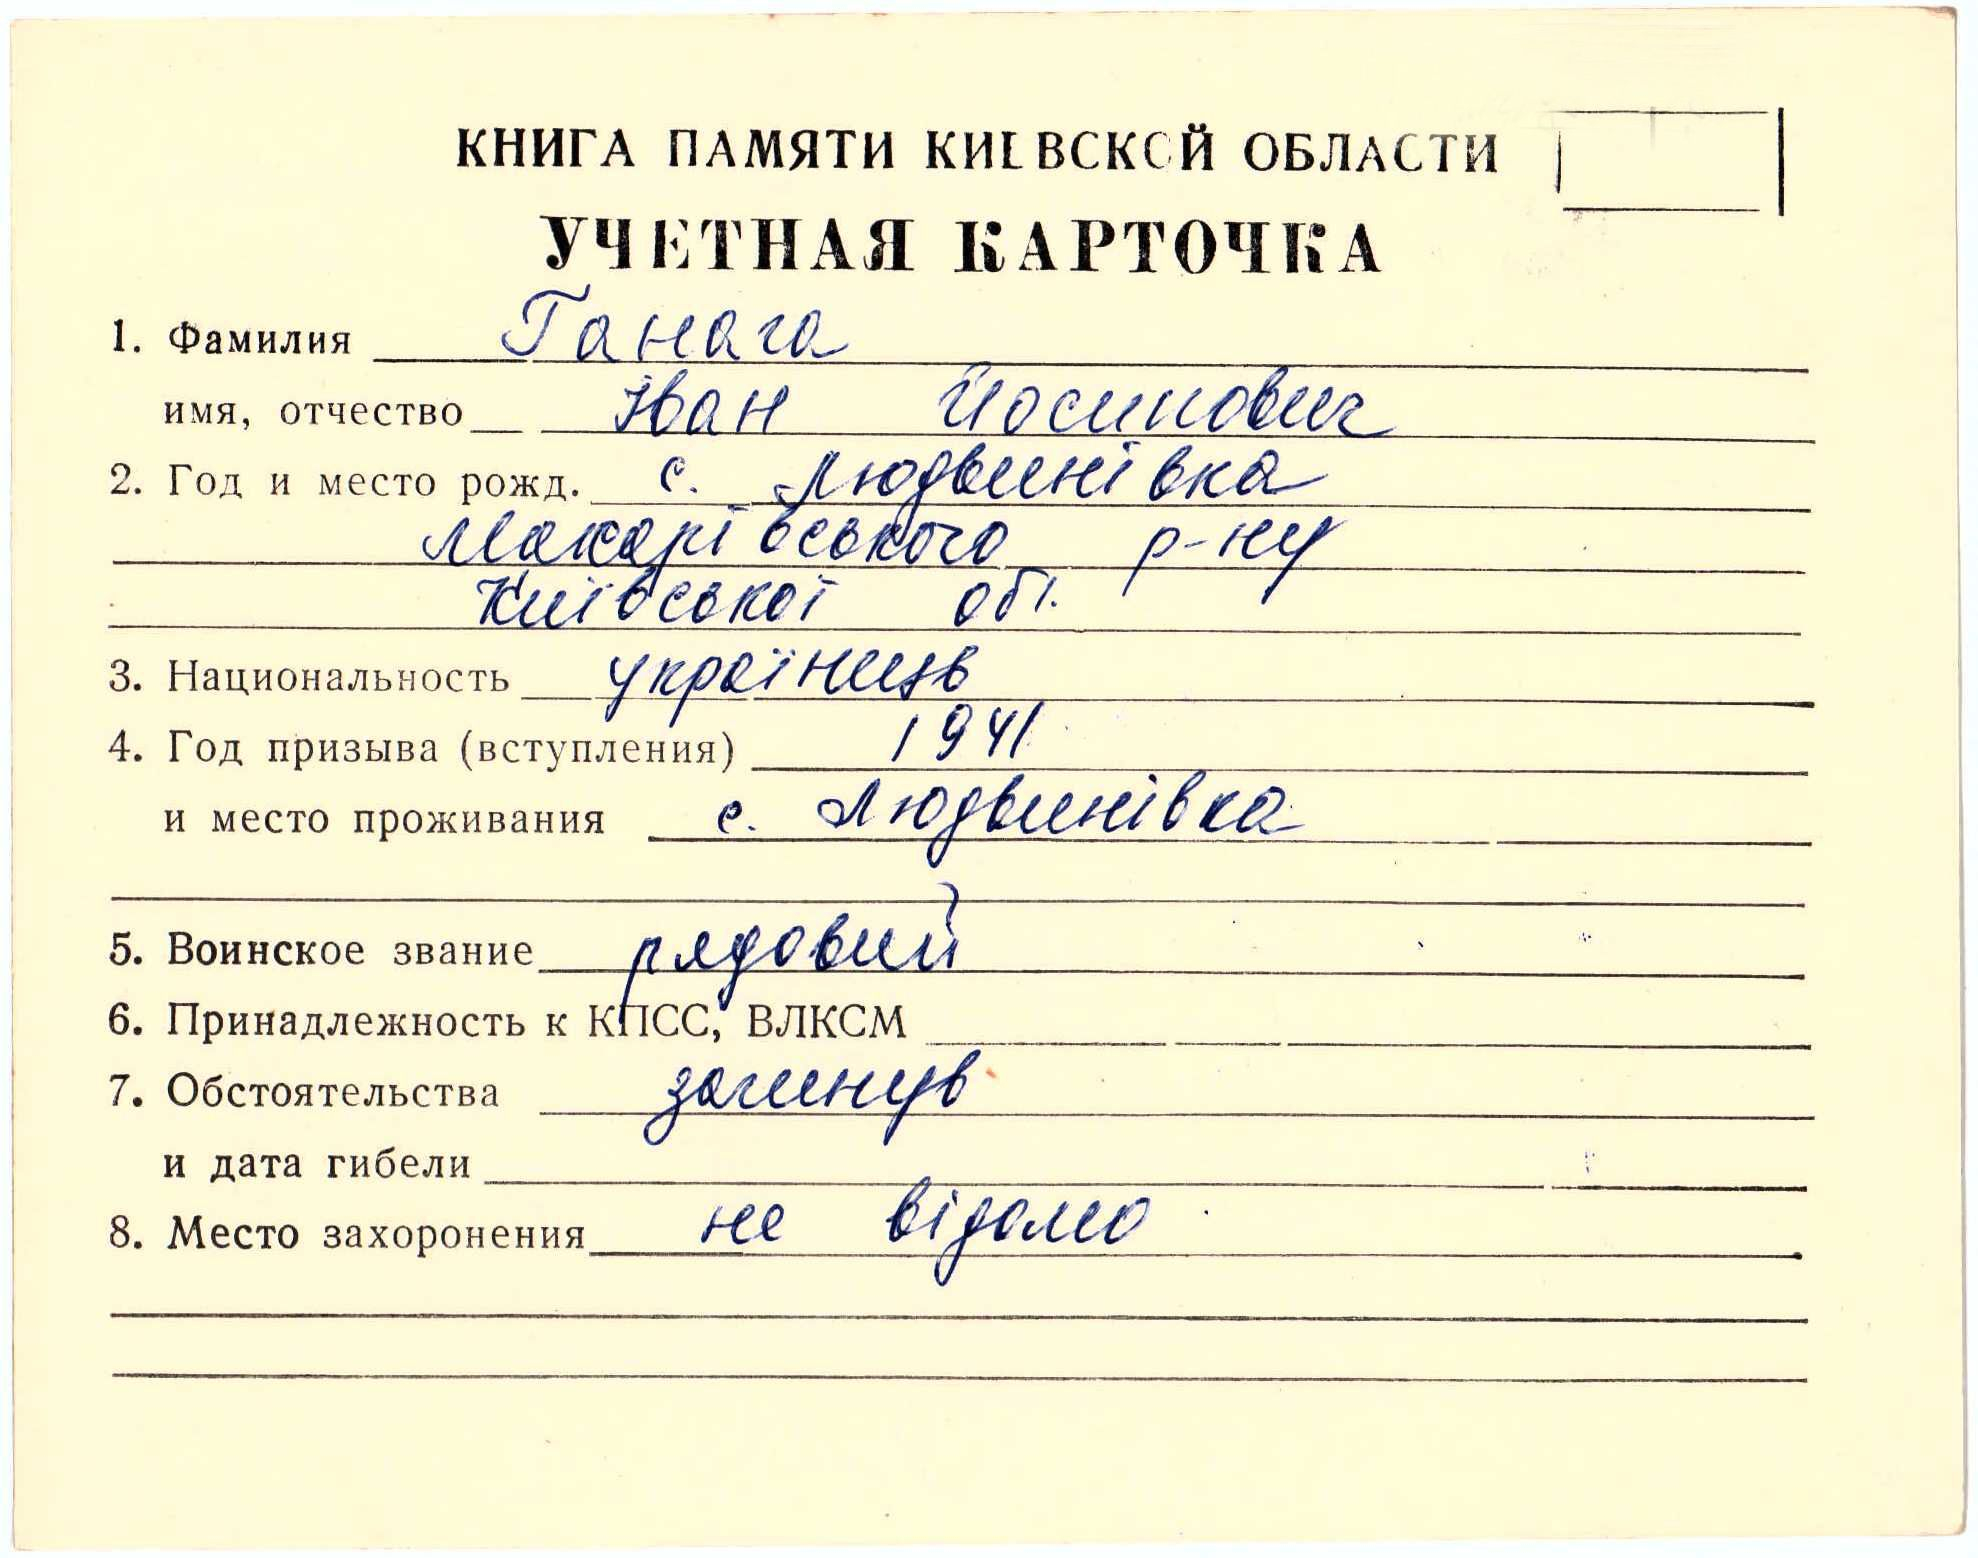 КНИГА ПАМЯТИ КИЕВСКОЙ ОБЛАСТИ
УЧЕТНАЯ КАРТОЧКА
1. Фамилия Ганага
имя, отчество Іван Йосипович
2. Год и место рожд. с. Людвинівка
Макарівського р-ну
Київської обл.
3. Национальность українець
4. Год призыва (вступления) 1941
и место проживания с. Людвинівка
5. Воинское звание рядовий
6. Принадлежность к КПСС, ВЛКСМ
7. Обстоятельства загинув
и дата гибели
8. Место захоронения не відомо